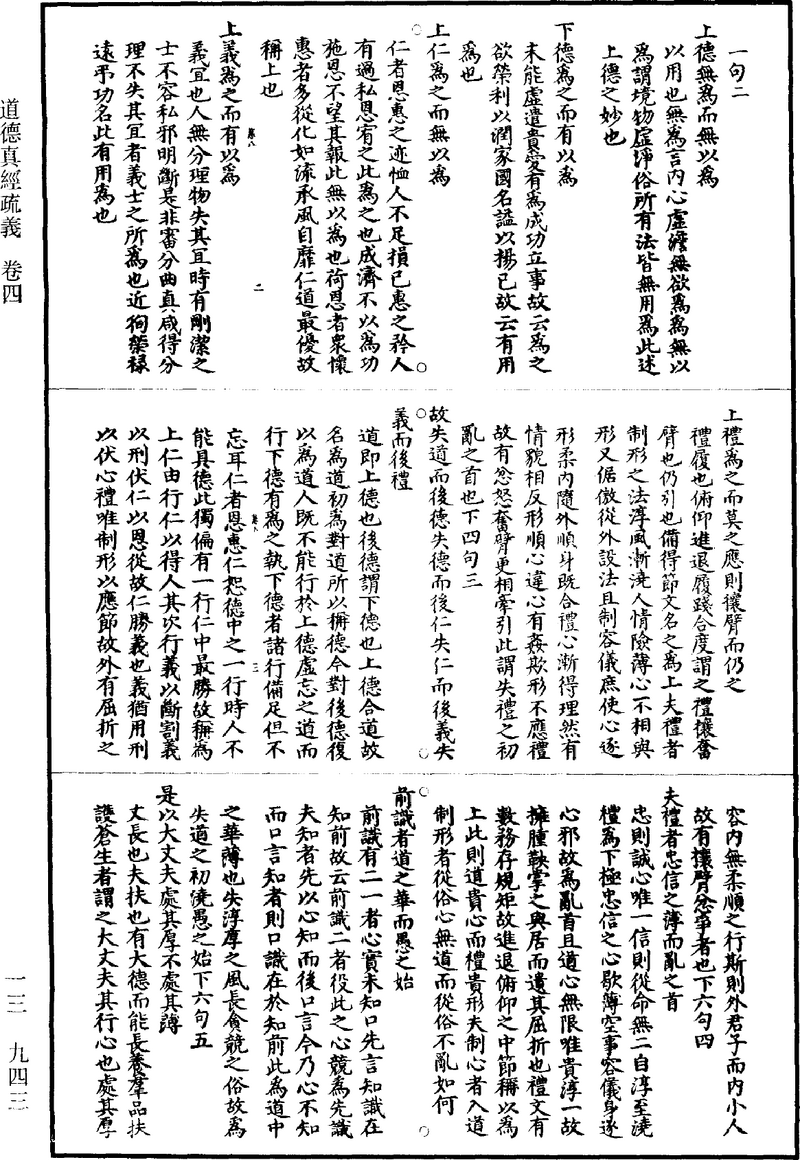 道德真經疏義　卷四
一句二
上德無為而無以為
以用也無為言內心虛澹無欲為為無以
為謂境物虛淨俗所有法皆無用為此述
上德之妙也
下德為之而有以為
未能虛遣貴愛有為成功立事故云為之
欲榮利以潤家國名謚以揚己故云有用
為也
上仁為之而無以為
仁者恩惠之迹恤人不足損己惠之矜人
有過私恩宥之此為之也成濟不以為功
施恩不望其報此無以為也荷恩者衆懷
惠者多從化如流承風自靡仁道最優故
稱上也
上義為之而有以為
義宜也人無分理物失其宜時有剛潔之
士不容私邪明斷是非審分曲直咸得分
理不失其宜者義士之所為也近徇榮祿
遠希功名此有用為也
上禮為之而莫之應則攘臂而仍之
禮履也俯仰進退履踐合度謂之禮攘奮
臂也仍引也備得節文名之為上夫禮者
制形之法淳風漸澆人情險薄心不相與
形又倨傲從外設法且制容儀庶使心遂
形柔內隨外順身既合禮心漸得理然有
情貌相反形順心違心有姦欺形不應禮
故有忿怒奮臂更相牽引此謂失禮之初
亂之首也下四句三
故失道而後德失德而後仁失仁而後義失
義而後禮
道即上德也後德謂下德也上德合道故
名為道初為對道所以稱德今對後德復
以為道人既不能行於上德虛忘之道而
行下德有為之執下德者諸行備足但不
忘耳仁者恩惠仁恕德中之一行時人不
能具德此獨偏有一行仁中最勝故稱為
上仁由行仁以得人其次行義以斷割義
以刑伏仁以恩從故仁勝義也義猶用刑
以伏心禮唯制形以應節故外有屈折之
容內無柔順之行斯則外君子而內小人
故有攘臂忿爭者也下六句四
夫禮者忠信之薄而亂之首
忠則誠心唯一信則從命無二自淳至澆
禮為下極忠信之心歇薄空事容儀身遂
心邪故為亂首且道心無限唯貴淳一故
擁腫鞅掌之與居而遺其屈折也禮文有
數務存規矩故進退俯仰之中節稱以為
上此則道貴心而禮貴形夫制心者入道
制形者從俗心無道而從俗不亂如何
前識者道之華而愚之始
前識有二一者心實未知口先言知識在
知前故云前識二者役此之心競為先識
夫知者先以心知而後口言今乃心不知
而口言知者則口識在於知前此為道中
之華薄也失淳厚之風長貪競之俗故為
失道之初澆愚之始下六句五
是以大丈夫處其厚不處其薄
丈長也夫扶也有大德而能長養羣品扶
護蒼生者謂之大丈夫其行心也處其厚
一三　九四三